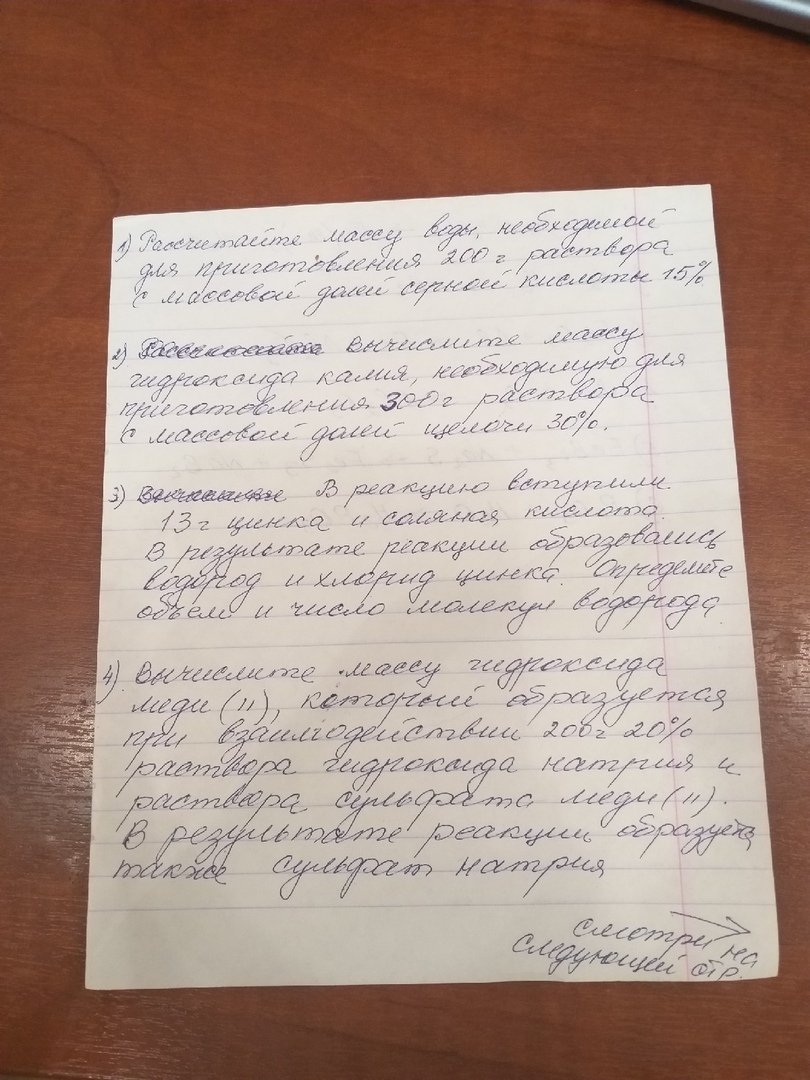 1) Рассчитайте массу воды, необходимой
для приготовления 200 г раствора
с массовой долей серной кислоты 15%
2) Вычислите массу
гидроксида калия, необходимую для
приготовления 300 г раствора
с массовой долей щелочи 30%.
3) В реакцию вступили
13 г цинка и соляная кислота.
В результате реакции образовались
водород и хлорид цинка. Определите
объем и число молекул водорода
4) Вычислите массу гидроксида
меди (II), который образуется
при взаимодействии 200 г 20%
раствора гидроксида натрия и
раствора сульфата меди (II).
В результате реакции образуется
также сульфат натрия
смотри на
следующей стр.